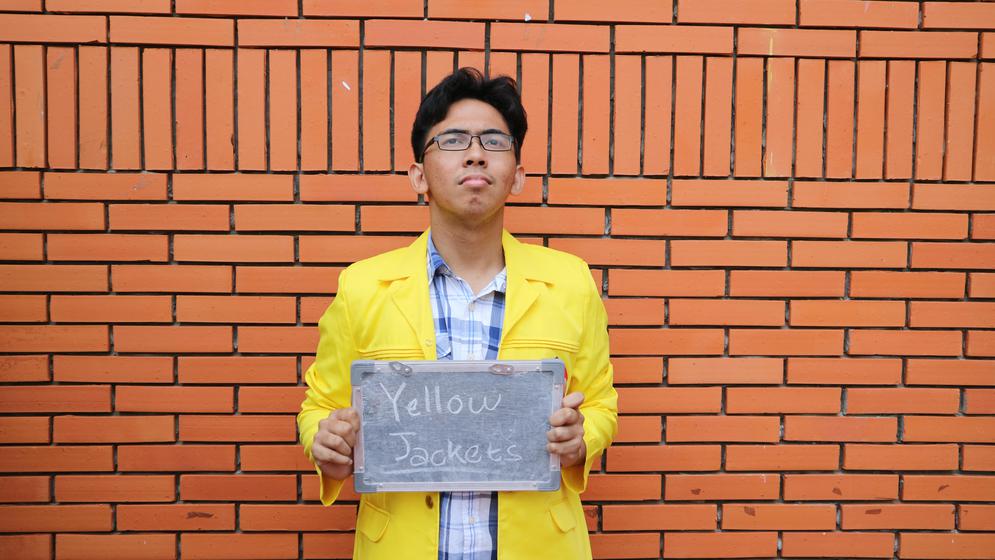 Yellow
Jackets